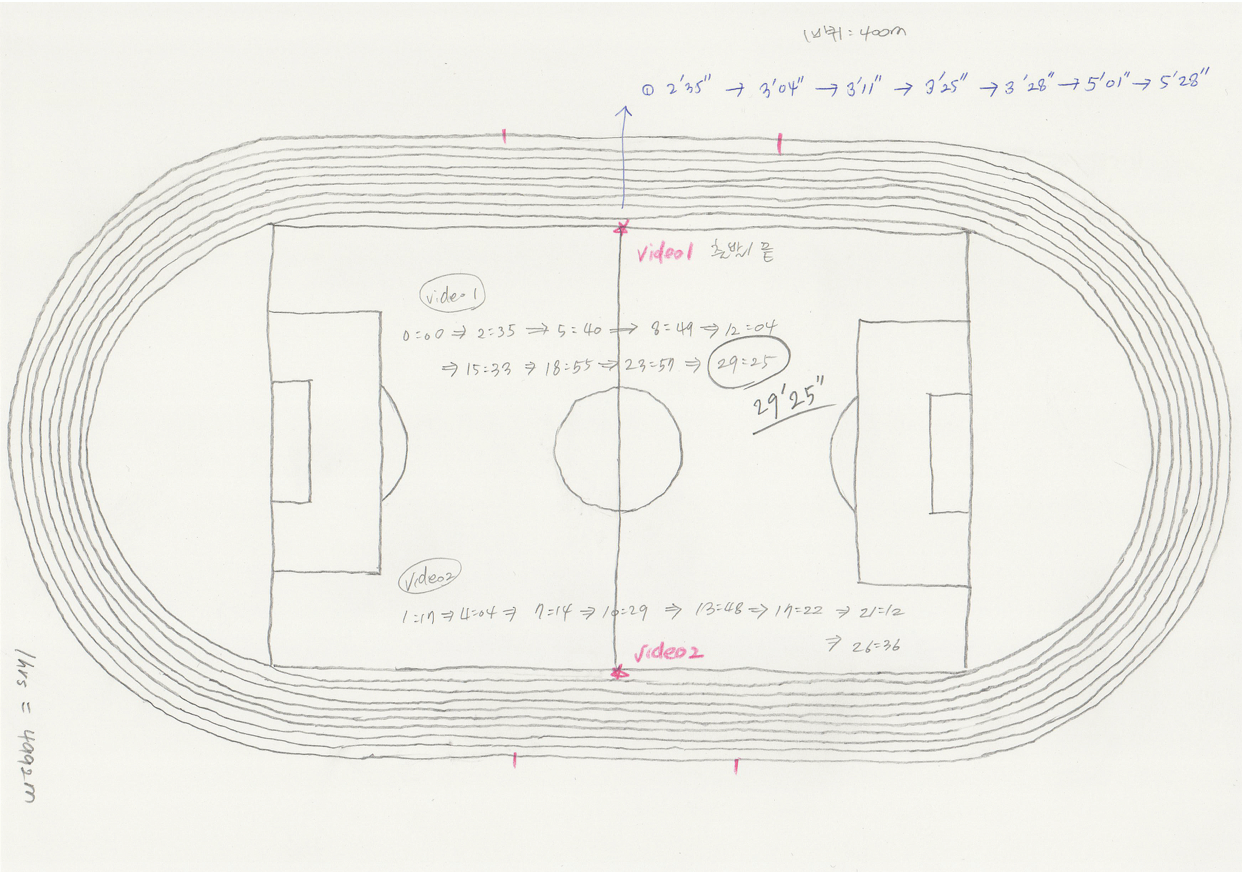 1바퀴 : 400m
① 2'35" → 3'04" → 3'11" → 3'25" → 3'28" → 5'01" → 5'28"
video1 출발/끝
video1
0:00 ⇒ 2:35 ⇒ 5:40 ⇒ 8:49 ⇒ 12:04
⇒ 15:33 ⇒ 18:55 ⇒ 23:57 ⇒ 29:25
29'25"
video2
1:17 ⇒ 4:04 ⇒ 7:14 ⇒ 10:29 ⇒ 13:48 ⇒ 17:22 ⇒ 21:12
⇒ 26:36
video2
1hrs = 4992m